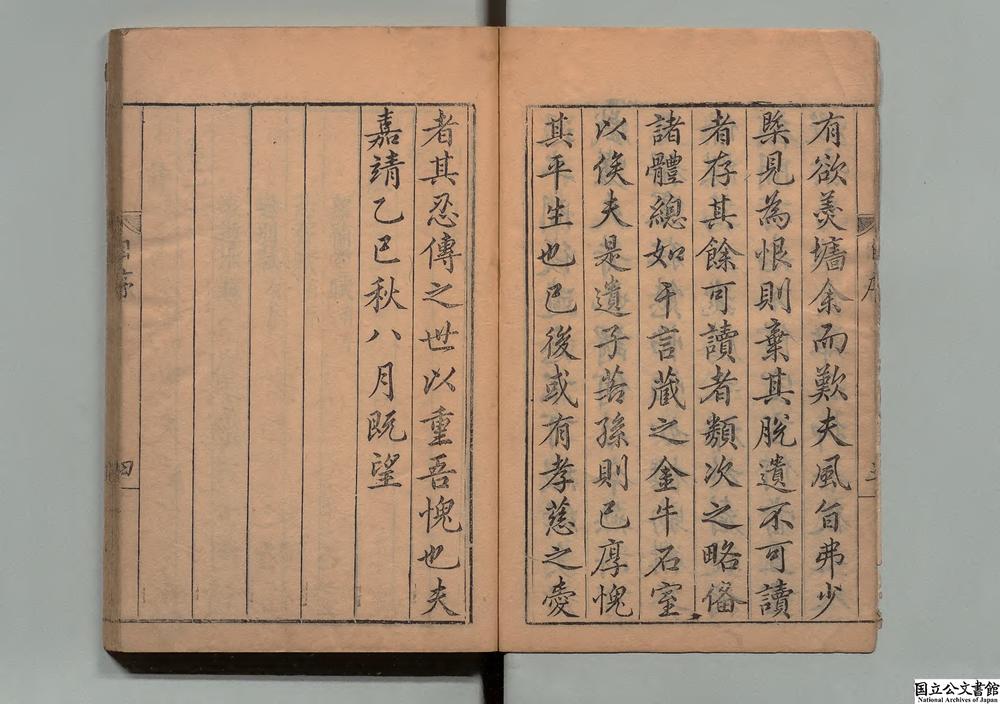 有欲羡墻余而歎夫風旨弗少
槩見為恨則棄其脫遺不可讀
者存其餘可讀者類次之略俻
諸體總如干言蔵之金牛石室
以俟夫是遺子若孫則已厚愧
其平生也已後或有孝慈之愛
者其忍傳之世以重吾愧也夫
嘉靖乙巳秋八月既望
序
四
国立公文書館
National Archives of Japan